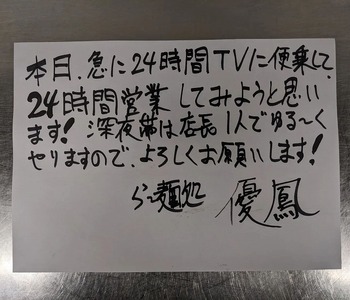 本日、急に24時間TVに便乗して、
24時間営業してみようと思い
ます！深夜帯は店長1人でゆる〜く
やりますので、よろしくお願いします！
らー麺処 優鳳